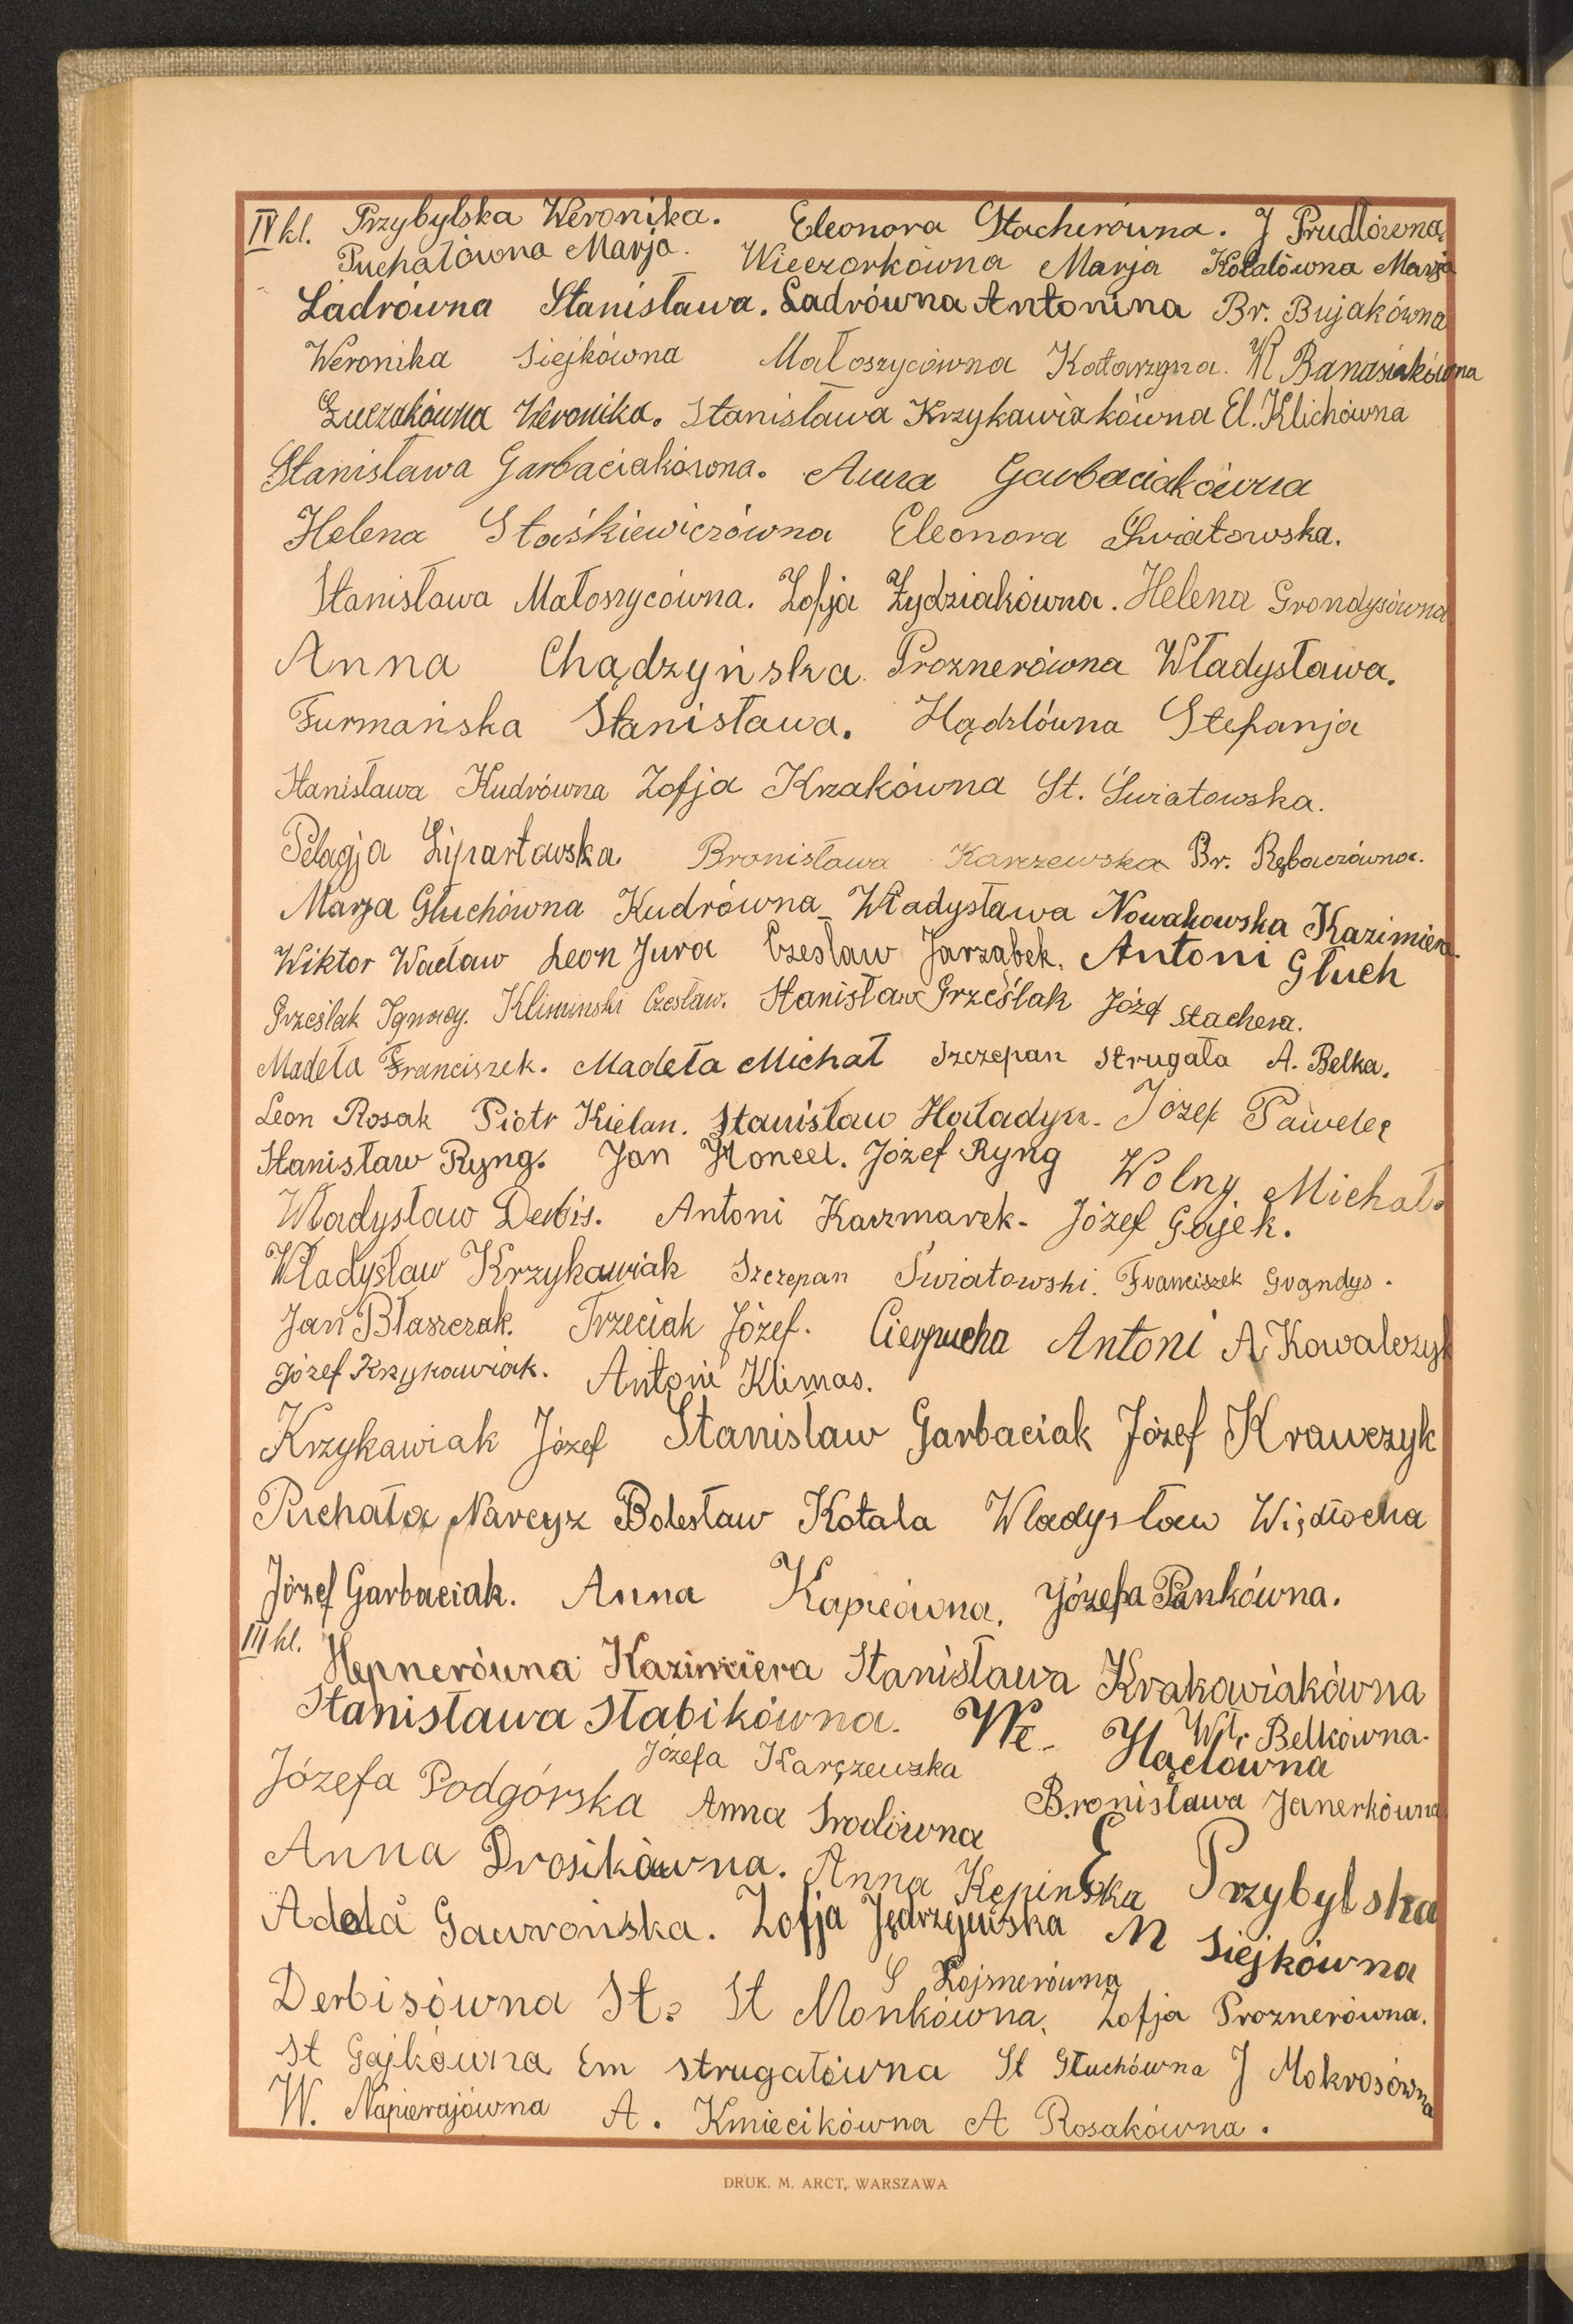 IV kl. Przybylska Weronika. Eleonora Stacherówna. J Prudłówna
Puchałówna Marja. Wieczorkówna Marja Kotalówna Marja
Ładrówna Stanisława. Ładrówna Antonina Br. Bujakówna
Weronika Siejkówna Małoszycówna Katarzyna. W Banasiakówna
Weronika. Stanisława Krzykawiakówna El. Klichówna
Stanisława Garbaciakówna. Anna Garbaciakówna
Helena Staśkiewiczówna Eleonora Światowska.
Stanisława Małoszycówna. Zofja Żydziakówna. Helena Grondysówna
Anna Chądzyńska Proznerówna Władysława.
Furmańska Stanisława. Hądzlówna Stefanja
Stanisława Kudrówna Zofja Krzakówna St. Światowska.
Pelagja Lipartowska. Bronisława Karzewska Br. Rębaczówna.
Marja Głuchówna Kudrówna Władysława Nowakowska Kazimiera.
Wiktor Wacław Leon Jura Czesław Jarząbek. Antoni Głuch
Grześlak Ignacy. Klimiński Czesław. Stanisław Grześlak Józef Stachera.
Madeła Franciszek. Madeła Michał Szczepan Strugała A. Belka.
Leon Rosak Piotr Kielan. Stanisław Haładyn. Józef Pawełeç
Stanisław Ryng. Jan Honcel. Józef Ryng Wolny Michał.
Władysław Derbis. Antoni Kaczmarek. Józef Gajek.
Władysław Krzykawiak Szczepan Światowski. Franciszek Grąndys.
Jan Błaszczak. Trzeciak Józef. Cierpucha Antoni A. Kowalczyk
Józef Krzykawiak. Antoni Klimas.
Krzykawiak Józef Stanisław Garbaciak Józef Krawczyk
Puchała Narcyz Bolesław Kotala Władysław Więdłocha
Józef Garbaciak. Anna Kapicówna. Józefa Pankówna.
III kl.
Hepnerówna Kazimiera Stanisława Krakowiakówna
Stanisława Stabikówna. Wł. Belkówna.
Wł. Hąclówna
Józefa Karczewska
Józefa Podgórska Anna Srodówna Bronisława Janerkówna
Anna Drosikówna. Anna Kępińska E Przybylska
Adela Gawrońska. Zofja Jędrzejewska M Siejkówna
S Lojsnerówna
Derbisówna St. St Monkówna. Zofja Proznerówna.
St Gajkówna Em Strugałówna St Głuchówna J Mokrosówna
W. Napierajówna A. Kmiecikówna A Rosakówna.
DRUK. M. ARCT, WARSZAWA